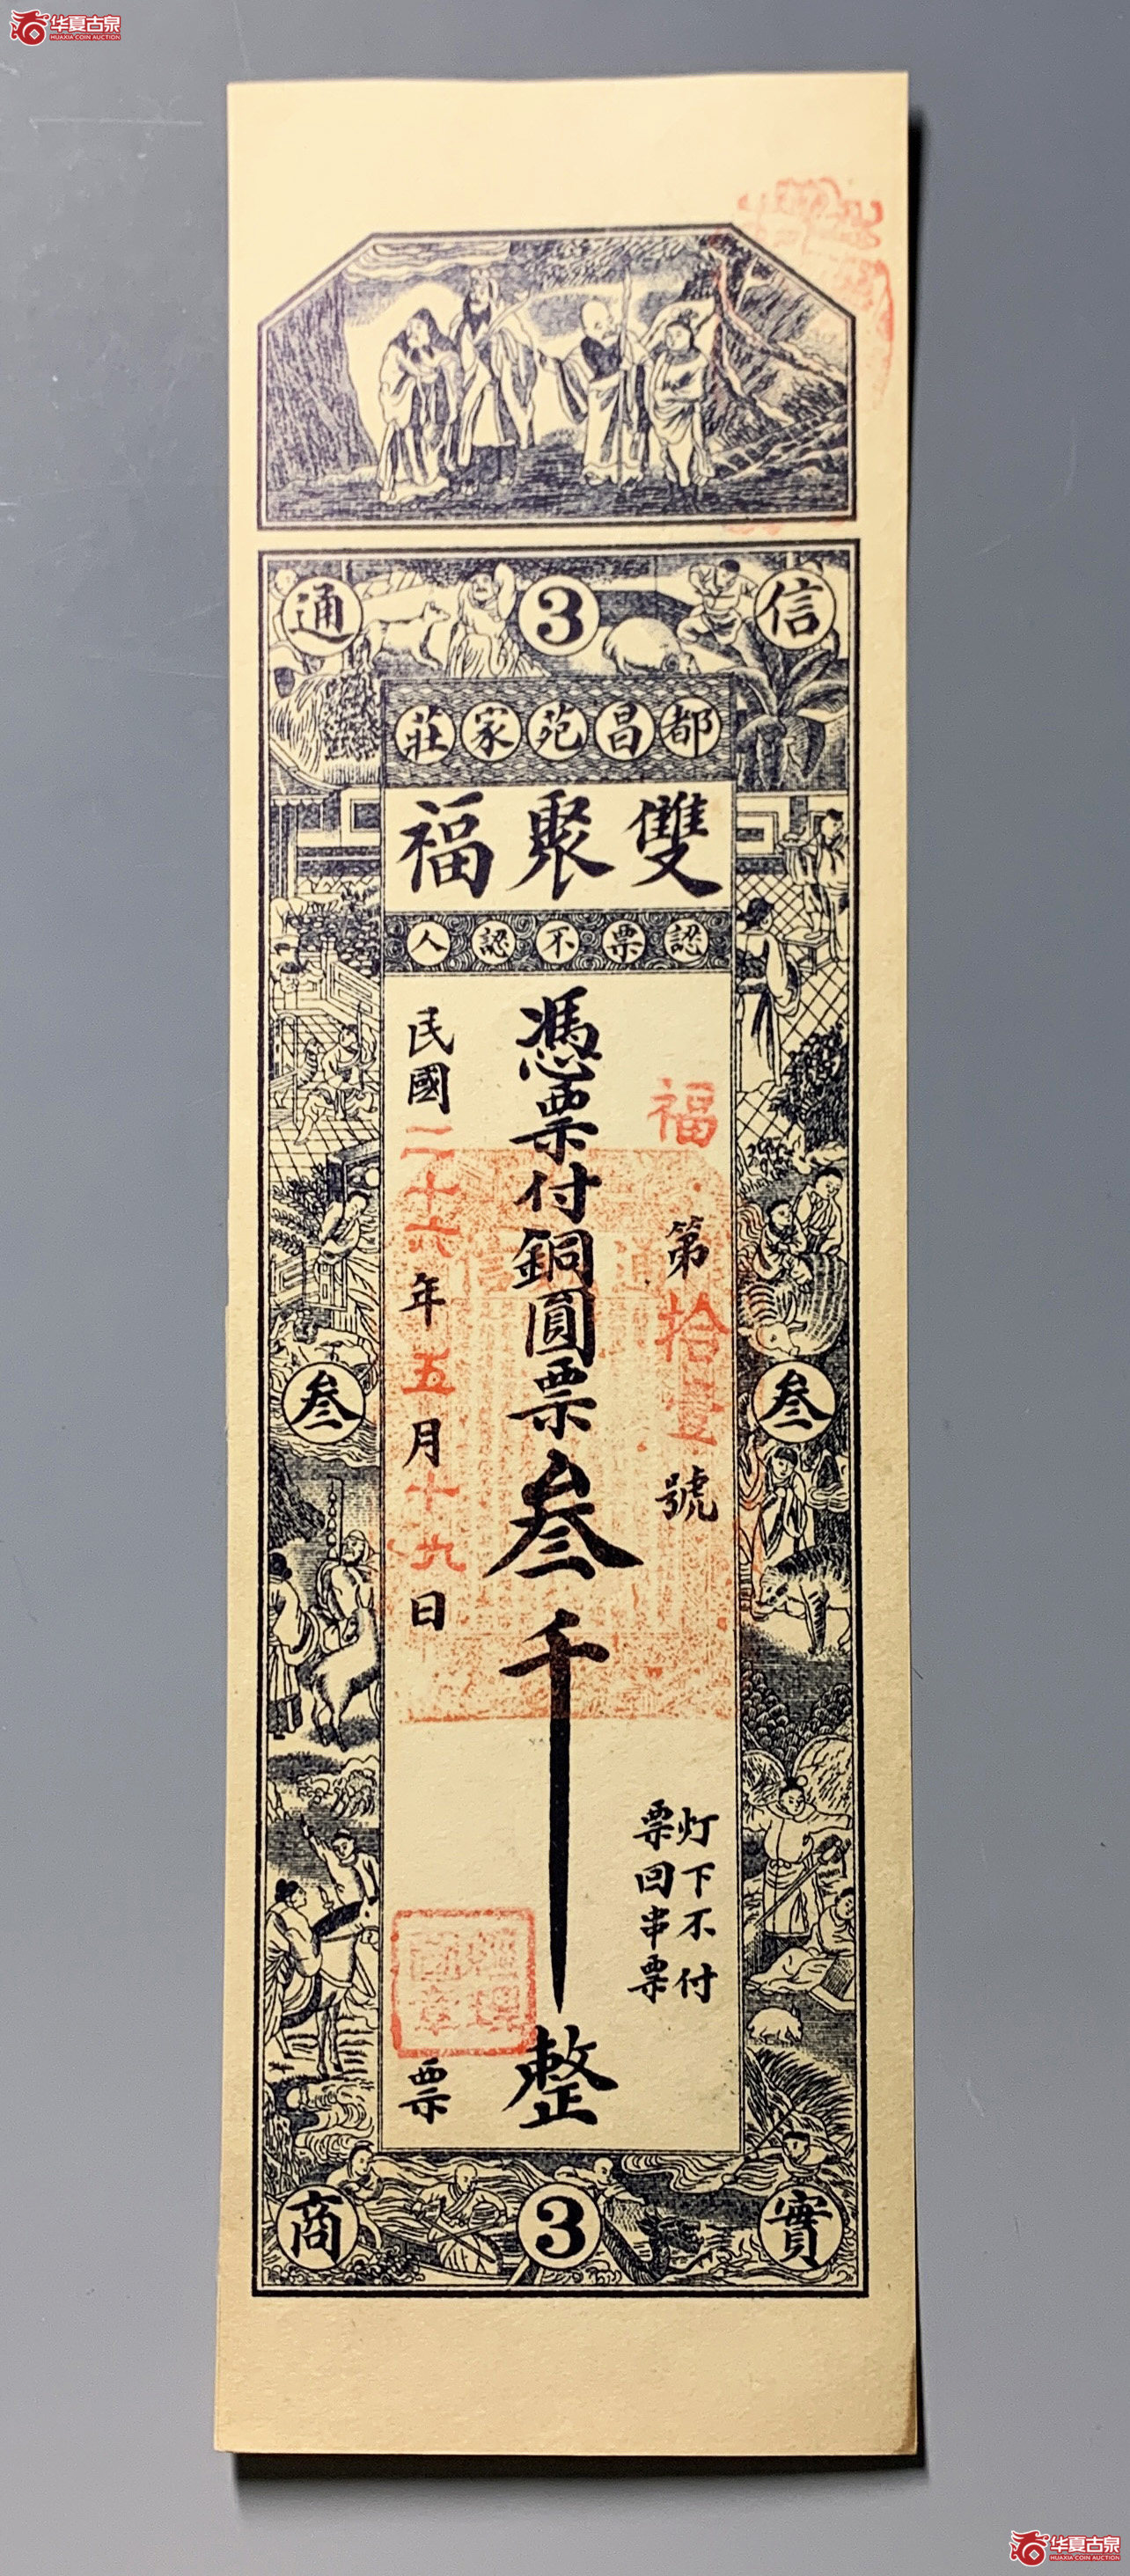 华夏古泉
HUAXIA COIN AUCTION
信
3
通
都昌苑家莊
雙聚福
認票不認人
福
第拾壹號
灯下不付
票回串票
憑票付銅圓票叁千整
民國二十六年五月十九日
票
經理
圖章
叁
叁
實
3
商
华夏古泉
HUAXIA COIN AUCTION